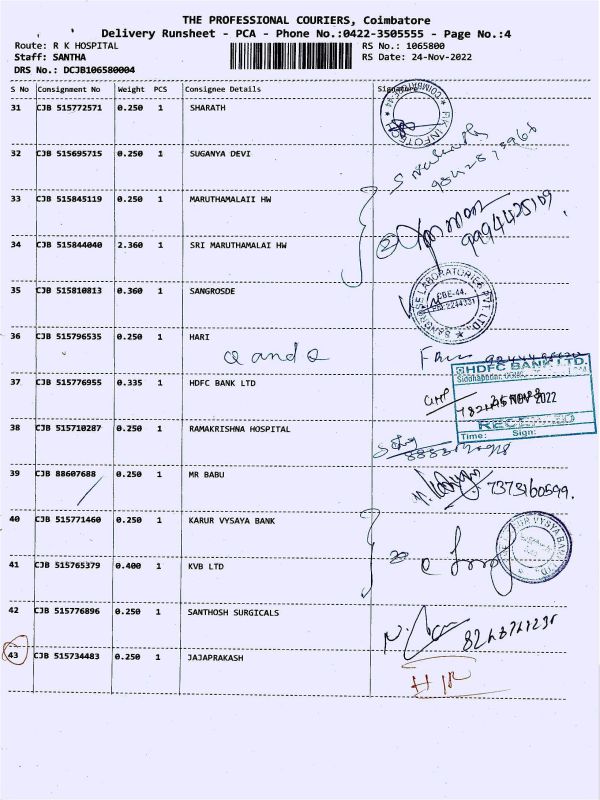 THE PROFESSIONAL COURIERS, Coimbatore
Delivery Runsheet - PCA - Phone No.:0422-3505555 - Page No.:4
Route: R K HOSPITAL RS No.: 1065800
Staff: SANTHA RS Date: 24-Nov-2022
DRS No.: DCJB106580004
S No Consignment No Weight PCS Consignee Details Signature
31 CJB 515772571 0.250 1 SHARATH
RK INFOTECH COIMBATORE-44
32 CJB 515695715 0.250 1 SUGANYA DEVI
33 CJB 515845119 0.250 1 MARUTHAMALAII HW
9994425109
34 CJB 515844040 2.360 1 SRI MARUTHAMALAI HW
35 CJB 515810813 0.360 1 SANGROSDE
SANGROSE LABORATORIES PVT. LTD. CBE-44.
36 CJB 515796535 0.250 1 HARI
Q and Q
HDFC BANK LTD.
37 CJB 515776955 0.335 1 HDFC BANK LTD
NOV 2022
RECEIVED
Time: Sign:
38 CJB 515710287 0.250 1 RAMAKRISHNA HOSPITAL
39 CJB 88607688 0.250 1 MR BABU
7373160599.
40 CJB 515771460 0.250 1 KARUR VYSAYA BANK
KARUR VYSYA BANK
41 CJB 515765379 0.400 1 KVB LTD
42 CJB 515776896 0.250 1 SANTHOSH SURGICALS
43 CJB 515734483 0.250 1 JAJAPRAKASH